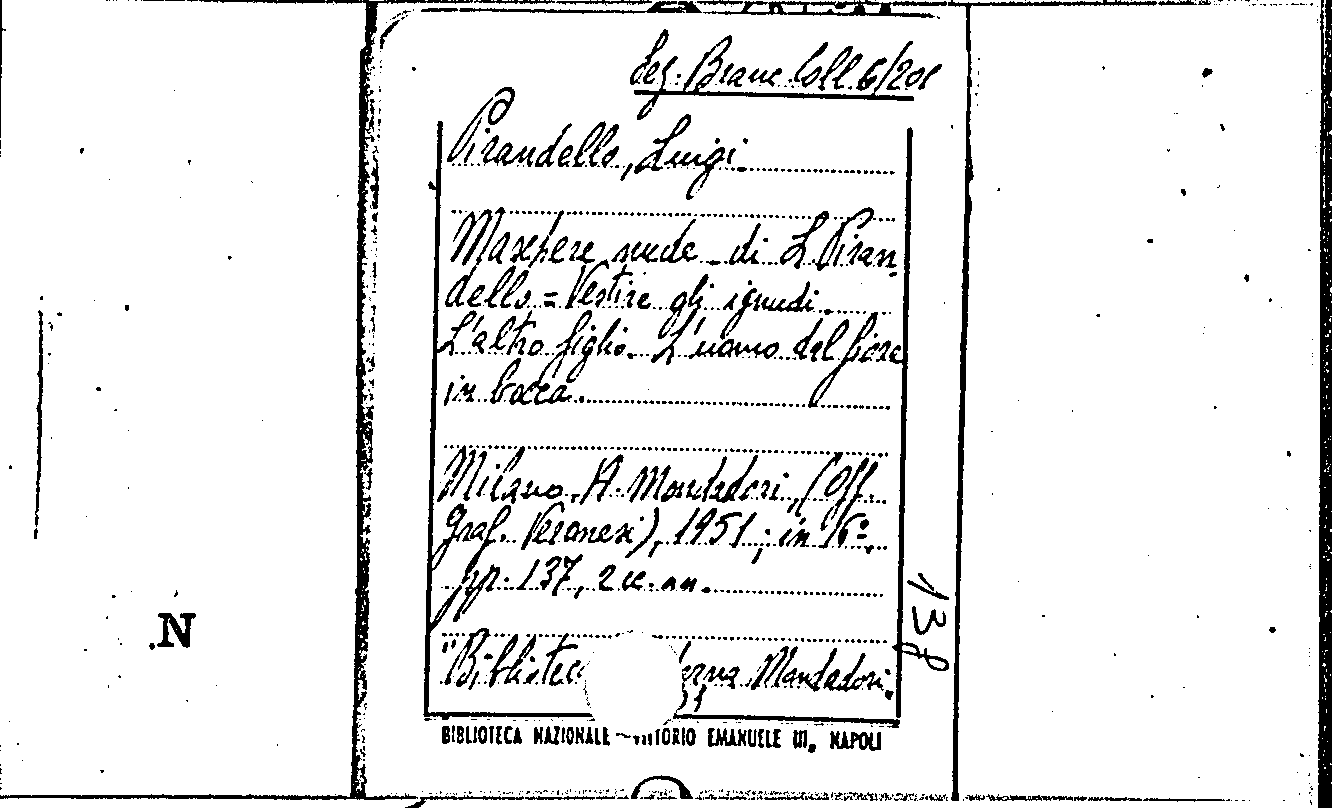 Leg. Branc. Coll. 6/201
Pirandello, Luigi.
Maschere nude - di L. Piran
dello = Vestire gli ignudi.
L'altro figlio. L'uomo dal fiore
in bocca.
Milano, A. Mondadori, (Off.
Graf. Veronesi), 1951; in 16º,
pp. 137, 2 cc. nn.
"Biblioteca erna Mondadori.
138
BIBLIOTECA NAZIONALE VITTORIO EMANUELE III, NAPOLI
.N